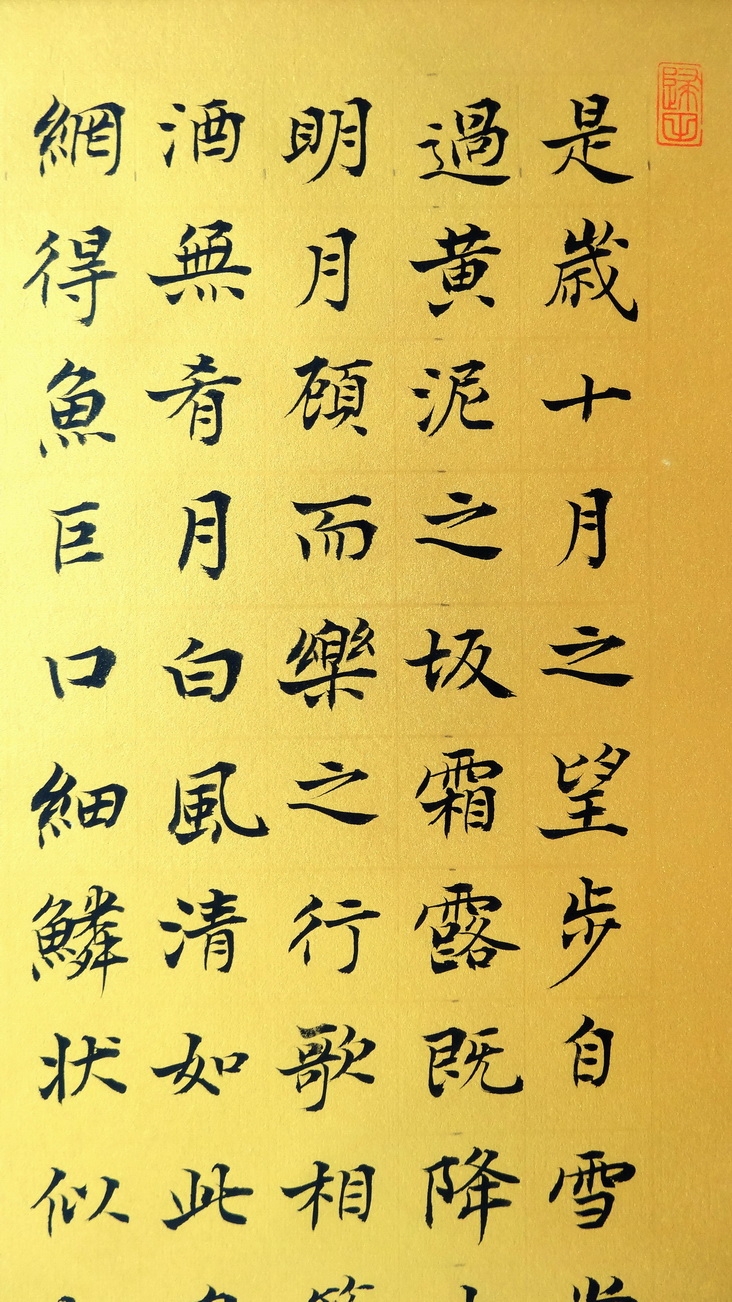 是歲十月之望步自雪
過黃泥之坂霜露既降
明月顧而樂之行歌相
酒無肴月白風清如此
網得魚巨口細鱗状似